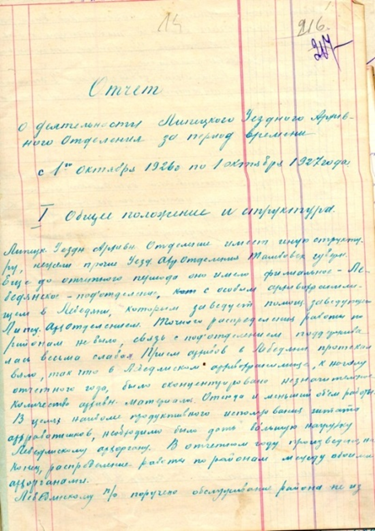 14
216.
217
Отчет
о деятельности Липецкого Уездного Архив-
ного Отделения за период времени
с 1го октября 1926г по 1 октября 1927 года
I Общие положение и структура.
Липецк. Уездн. Архивн. Отделение имеет иную структу-
ру, нежели прочие Уезд. Архотделения Тамбовск. губерн.
Еще до отчетного периода оно имело филиальное - Ле-
бедянское - подотделение, кот с особым архивохранили-
щем в Лебедяни, котором заведует помощ. заведующего
Лип. Архотделением. Точного распределения работы по
районам не было, связь с подотделением поддержива-
лась весьма слабая. Прием архивов в Лебедяни протекал
вяло, так что в Лебедянском архивохранилище, к началу
отчетного года, было сконцентрировано незначительное
количество архивн. материалов. Отсюда и меньший объем работы.
В целях наиболее продуктивного использования штата
архработников, необходимо было дать большую нагрузку
Лебедянскому архоргану. В отчетном году произведено, на-
конец, распределение работы по районам между обоими
архорганами.
Лебедянскому п/о поручено обслуживание района не из